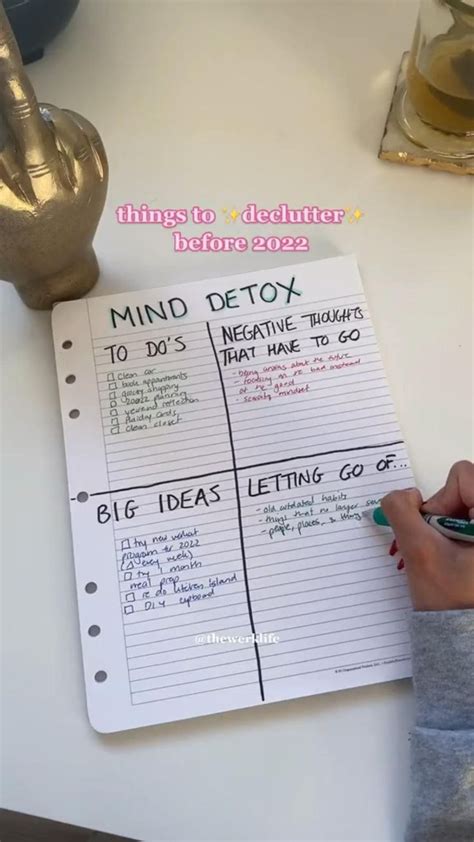 things to ✨declutter✨
before 2022
MIND DETOX
TO DO'S
clean car
book appointments
grocery shopping
2022 planning
year end reflection
holiday cards
clean closet
NEGATIVE THOUGHTS
THAT HAVE TO GO
- being anxious about the future
- focusing on the bad instead
of the good
- scarcity mindset
BIG IDEAS
try new workout
program for 2022
every week)
try 1 month
meal prep
re do kitchen island
DIY cupboard
LETTING GO OF...
- old outdated habits
- things that no longer
- people, places, & things
@thewerklife